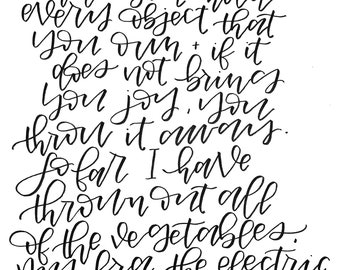 every object that
you own + if it
does not bring
you joy, you
throw it away.
So far I have
thrown out all
of the vegetables.
my bra, the electric